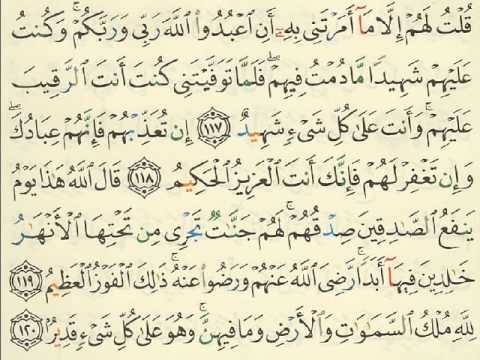 قُلۡتُ لَهُمۡ إِلَّا مَآ أَمَرۡتَنِي بِهِۦٓ أَنِ ٱعۡبُدُواْ ٱللَّهَ رَبِّي وَرَبَّكُمۡۚ وَكُنتُ
عَلَيۡهِمۡ شَهِيدٗا مَّا دُمۡتُ فِيهِمۡۖ فَلَمَّا تَوَفَّيۡتَنِي كُنتَ أَنتَ ٱلرَّقِيبَ
عَلَيۡهِمۡۚ وَأَنتَ عَلَىٰ كُلِّ شَيۡءٖ شَهِيدٌ ١١٧ إِن تُعَذِّبۡهُمۡ فَإِنَّهُمۡ عِبَادُكَۖ
وَإِن تَغۡفِرۡ لَهُمۡ فَإِنَّكَ أَنتَ ٱلۡعَزِيزُ ٱلۡحَكِيمُ ١١٨ قَالَ ٱللَّهُ هَٰذَا يَوۡمُ
يَنفَعُ ٱلصَّٰدِقِينَ صِدۡقُهُمۡۚ لَهُمۡ جَنَّٰتٞ تَجۡرِي مِن تَحۡتِهَا ٱلۡأَنۡهَٰرُ
خَٰلِدِينَ فِيهَآ أَبَدٗاۚ رَّضِيَ ٱللَّهُ عَنۡهُمۡ وَرَضُواْ عَنۡهُۚ ذَٰلِكَ ٱلۡفَوۡزُ ٱلۡعَظِيمُ ١١٩
لِلَّهِ مُلۡكُ ٱلسَّمَٰوَٰتِ وَٱلۡأَرۡضِ وَمَا فِيهِنَّۚ وَهُوَ عَلَىٰ كُلِّ شَيۡءٖ قَدِيرُۢ ١٢٠